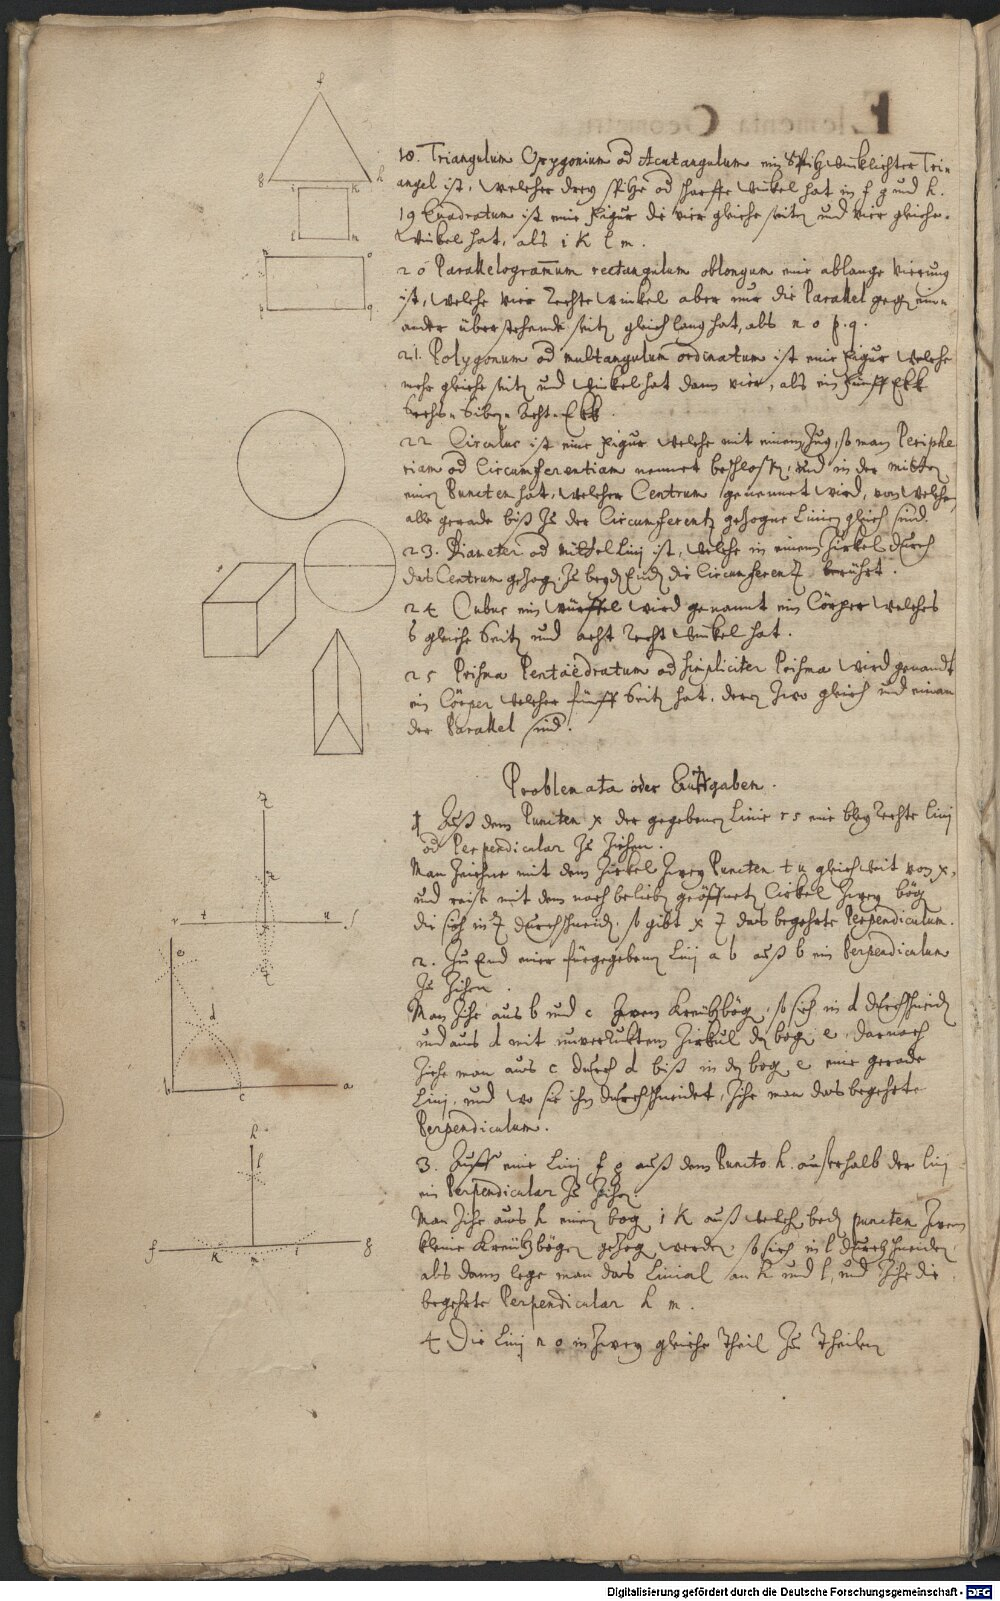 18. Triangulum Oxygonium od Acutangulum ein Spitzwinklichter Trian
angel ist, welcher drey spitze od scharffe winkel hat in f g und h.
19 Quadratum ist eine Figur die vier gleiche seiten und vier gleiche
winkel hat, als i k l m.
20 Parallelogram̄um rectangulum oblongum eine ablange Vierung
ist, welche vier Rechte winkel aber nur die Parallel gegen ein=
ander überstehende seiten gleich lang hat, als n o p. q.
21. Polygonum od multangulum ordinatum ist eine Figur welche
mehr gleiche seiten und winkel hat dann vier, als ein fünff Ekk
Sechs= Siben= Acht=Ekk.
22 Circulus ist eine Figur welche mit einem Zug, so man Periphe
riam od Circumferentiam nennet beschlossen, und in der mitten
einen Puncten hat, welcher Centrum genennet wird, von welchen
alle gerade biß Zu der Circumferentz gezogne Linien gleich sind.
23. Diameter od Mittel Linj ist, welche in einem Zirkel durch
das Centrum gezogen Zu beyden Enden die Circumferenz berührt.
24 Cubus ein würffel wird genannt ein Cörper welches
6 gleiche Seiten und acht Recht winkel hat.
25 Prisma Pentaëdratum od simpliciter Prisma wird genandt
ein Cörper welcher fünff Seiten hat, deren Zwo gleich und einan
der Parallel sind.
Problemata oder Auffgaben.
1 Auß dem Puncten x der gegebenen Linie r s eine bley Rechte linj
od Perpendicular Zu Ziehen.
Man Zeichne mit dem Zirkel Zwey Puncten t u gleich weit von x,
und reisse mit dem nach belieben geöffneten Cirkel Zwey bögen
die sich in Z durchschneiden, so gibt x Z das begehrte Perpendiculum.
2. Zu End einer fürgegebenen Linj a b auß b ein Perpendiculum
Zu Zihen.
Man Zihe aus b und c Zween Kreützbögen, so sich in d durchschneiden
und aus d mit unverruktem Zirkul den bogen e, darnach
Ziehe man aus c durch d biß in den bogen e eine gerade
Linj, und wo sie ihn durchschneidet, Zihe man das begehrte
Perpendiculum.
3. Auff eine Linj f g auß dem Puncto h. ausserhalb der linj
ein Perpendicular Zu Zihen
Man Zihe aus h einen bogen i k auß welchen beden puncten Zween
kleine Kreützbögen gezogen werden, so sich in l durchschneiden,
als dann lege man das Linial an h und l, und Zihe die
begehrte Perpendicular h m.
4 Die Linj n o in Zwey gleiche Theil Zu Theilen
f
g i k h
l m
n o
p q
Z
x
r t u s
e
d
b c a
h
l
f k m i g
Digitalisierung gefördert durch die Deutsche Forschungsgemeinschaft - DFG